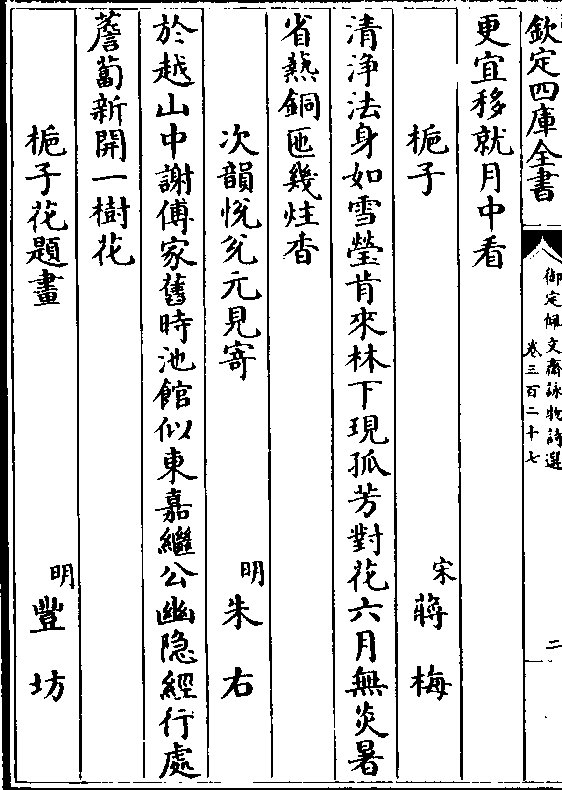 欽定四庫全書
御定佩文齋詠物詩選
卷三百二十七
二
更宜移就月中看
梔子
宋 蔣 梅
清浄法身如雪瑩肯來林下現孤芳對花六月無炎暑
省爇銅匜幾炷香
次韻悅兊元見寄
明 朱 右
於越山中謝傅家舊時池館似東嘉繼公幽隐經行處
薝蔔新開一樹花
梔子花題畫
明 豐 坊